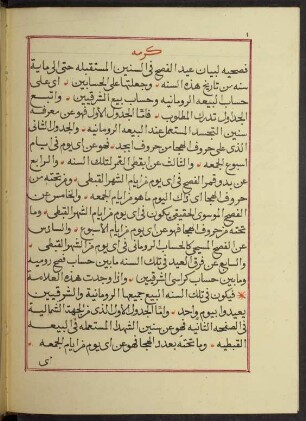 ١
كرمه
فصحيه لبيان عيد الفصح في السنين المستقبله حتى الى ماية
سنه من تاريخ هذه السنه وجعلتها على الحسابين اي على
حساب البيعه الرومانيه وحساب بيع الشرقيين واتبع
الجداول تدرك المطلوب فاما الجدول الاول فهو عن معرفة
سنين التجسد المستعل عند البيعه الرومانيه والجدول الثاني
الذي على حروف الهجا من حروف ابجد فهو عن اي يوم في ايام
اسبوع الجمعه والثالث عن ابقطي القمر لتلك السنه والرابع
عن بدو قمر الفصح في اي يوم من ايام الشهر القبطي وما تحته من
حروف الهجا اي لتلك في اي يوم من ايام الجمعه والخامس عن
الفصح الموسوي الحقيقي يكون في اي يوم من ايام الشهر القبطي وما
تحته من حروف الهجا فهو عن اي يوم من ايام الاسبوع والسادس
عن الفصح المسيحي كالحساب الروماني في اي يوم من الشهر القبطي
والسابع عن فرق العيد في تلك السنه ما بين حساب فصح رومية
وما بين حساب كراسي الشرقيين واذا وجدت هذه العلامة
فيكون في تلك السنه البيع جميعها الرومانية والشرقيين
يعيدوا بيوم واحد واما الجدول الاول الذي من الجهة الشمالية
في الصفحه الثانيه فهو عن سنين الشهدا المستعله في البيعه
القبطيه وما تحته بعدد الهجا فهو عن اي يوم من ايام الجمعه